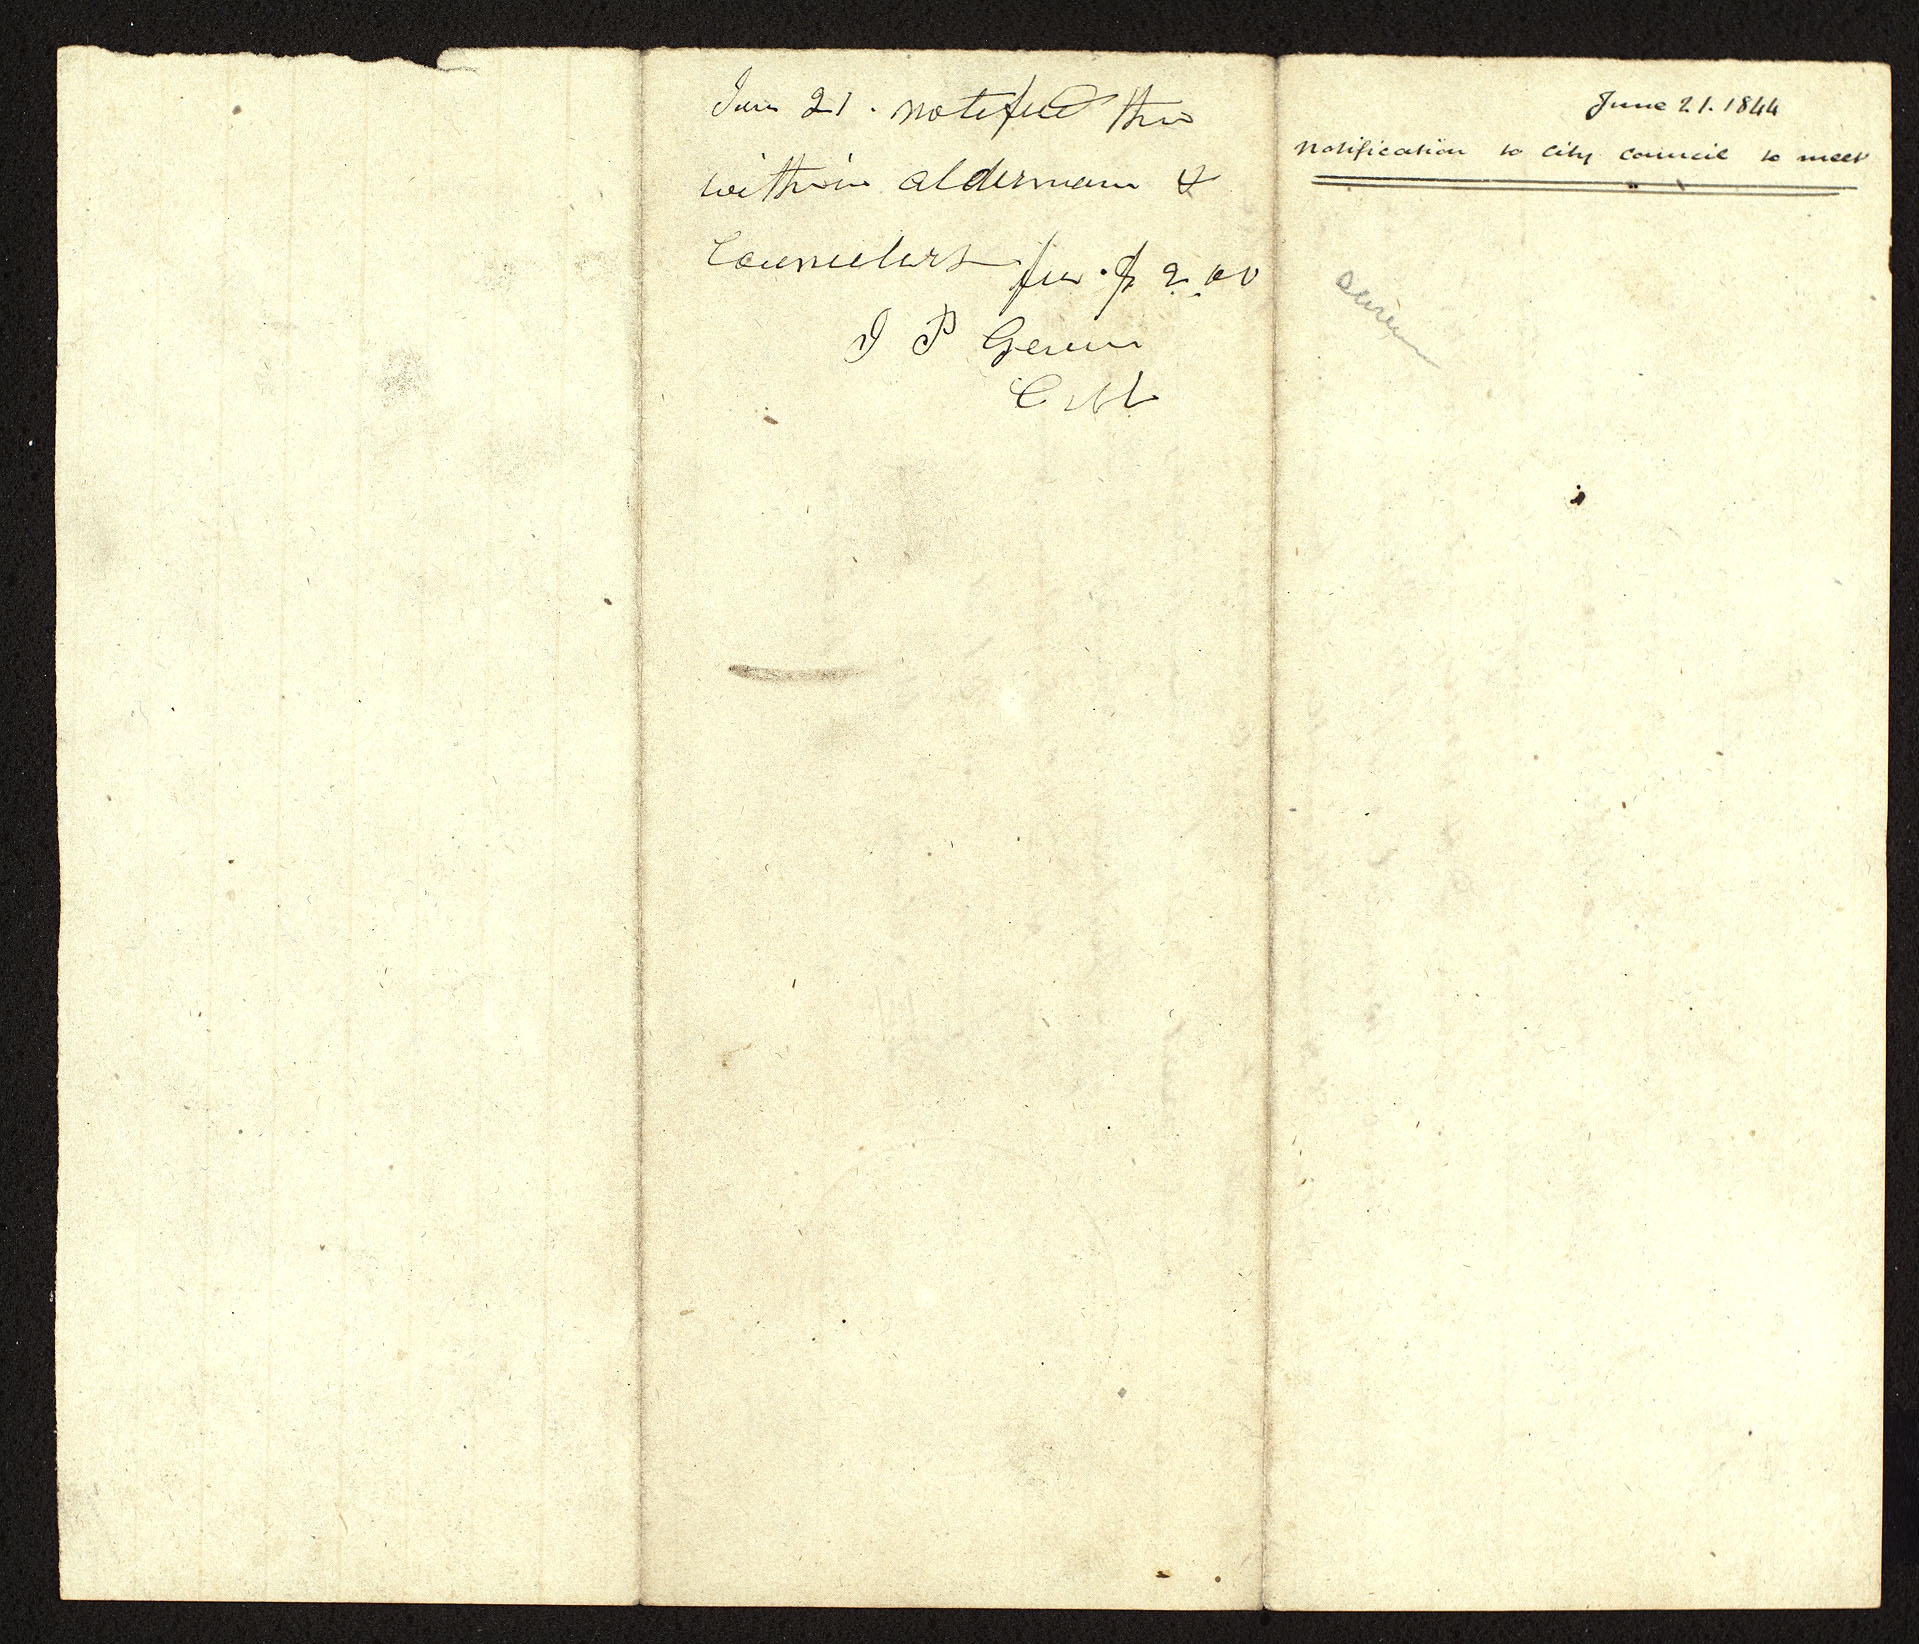 June 21. notified the
within aldermen &
Councilers fee. $ 2.00
J P Green
June 21. 1844
Notification to city council to meet